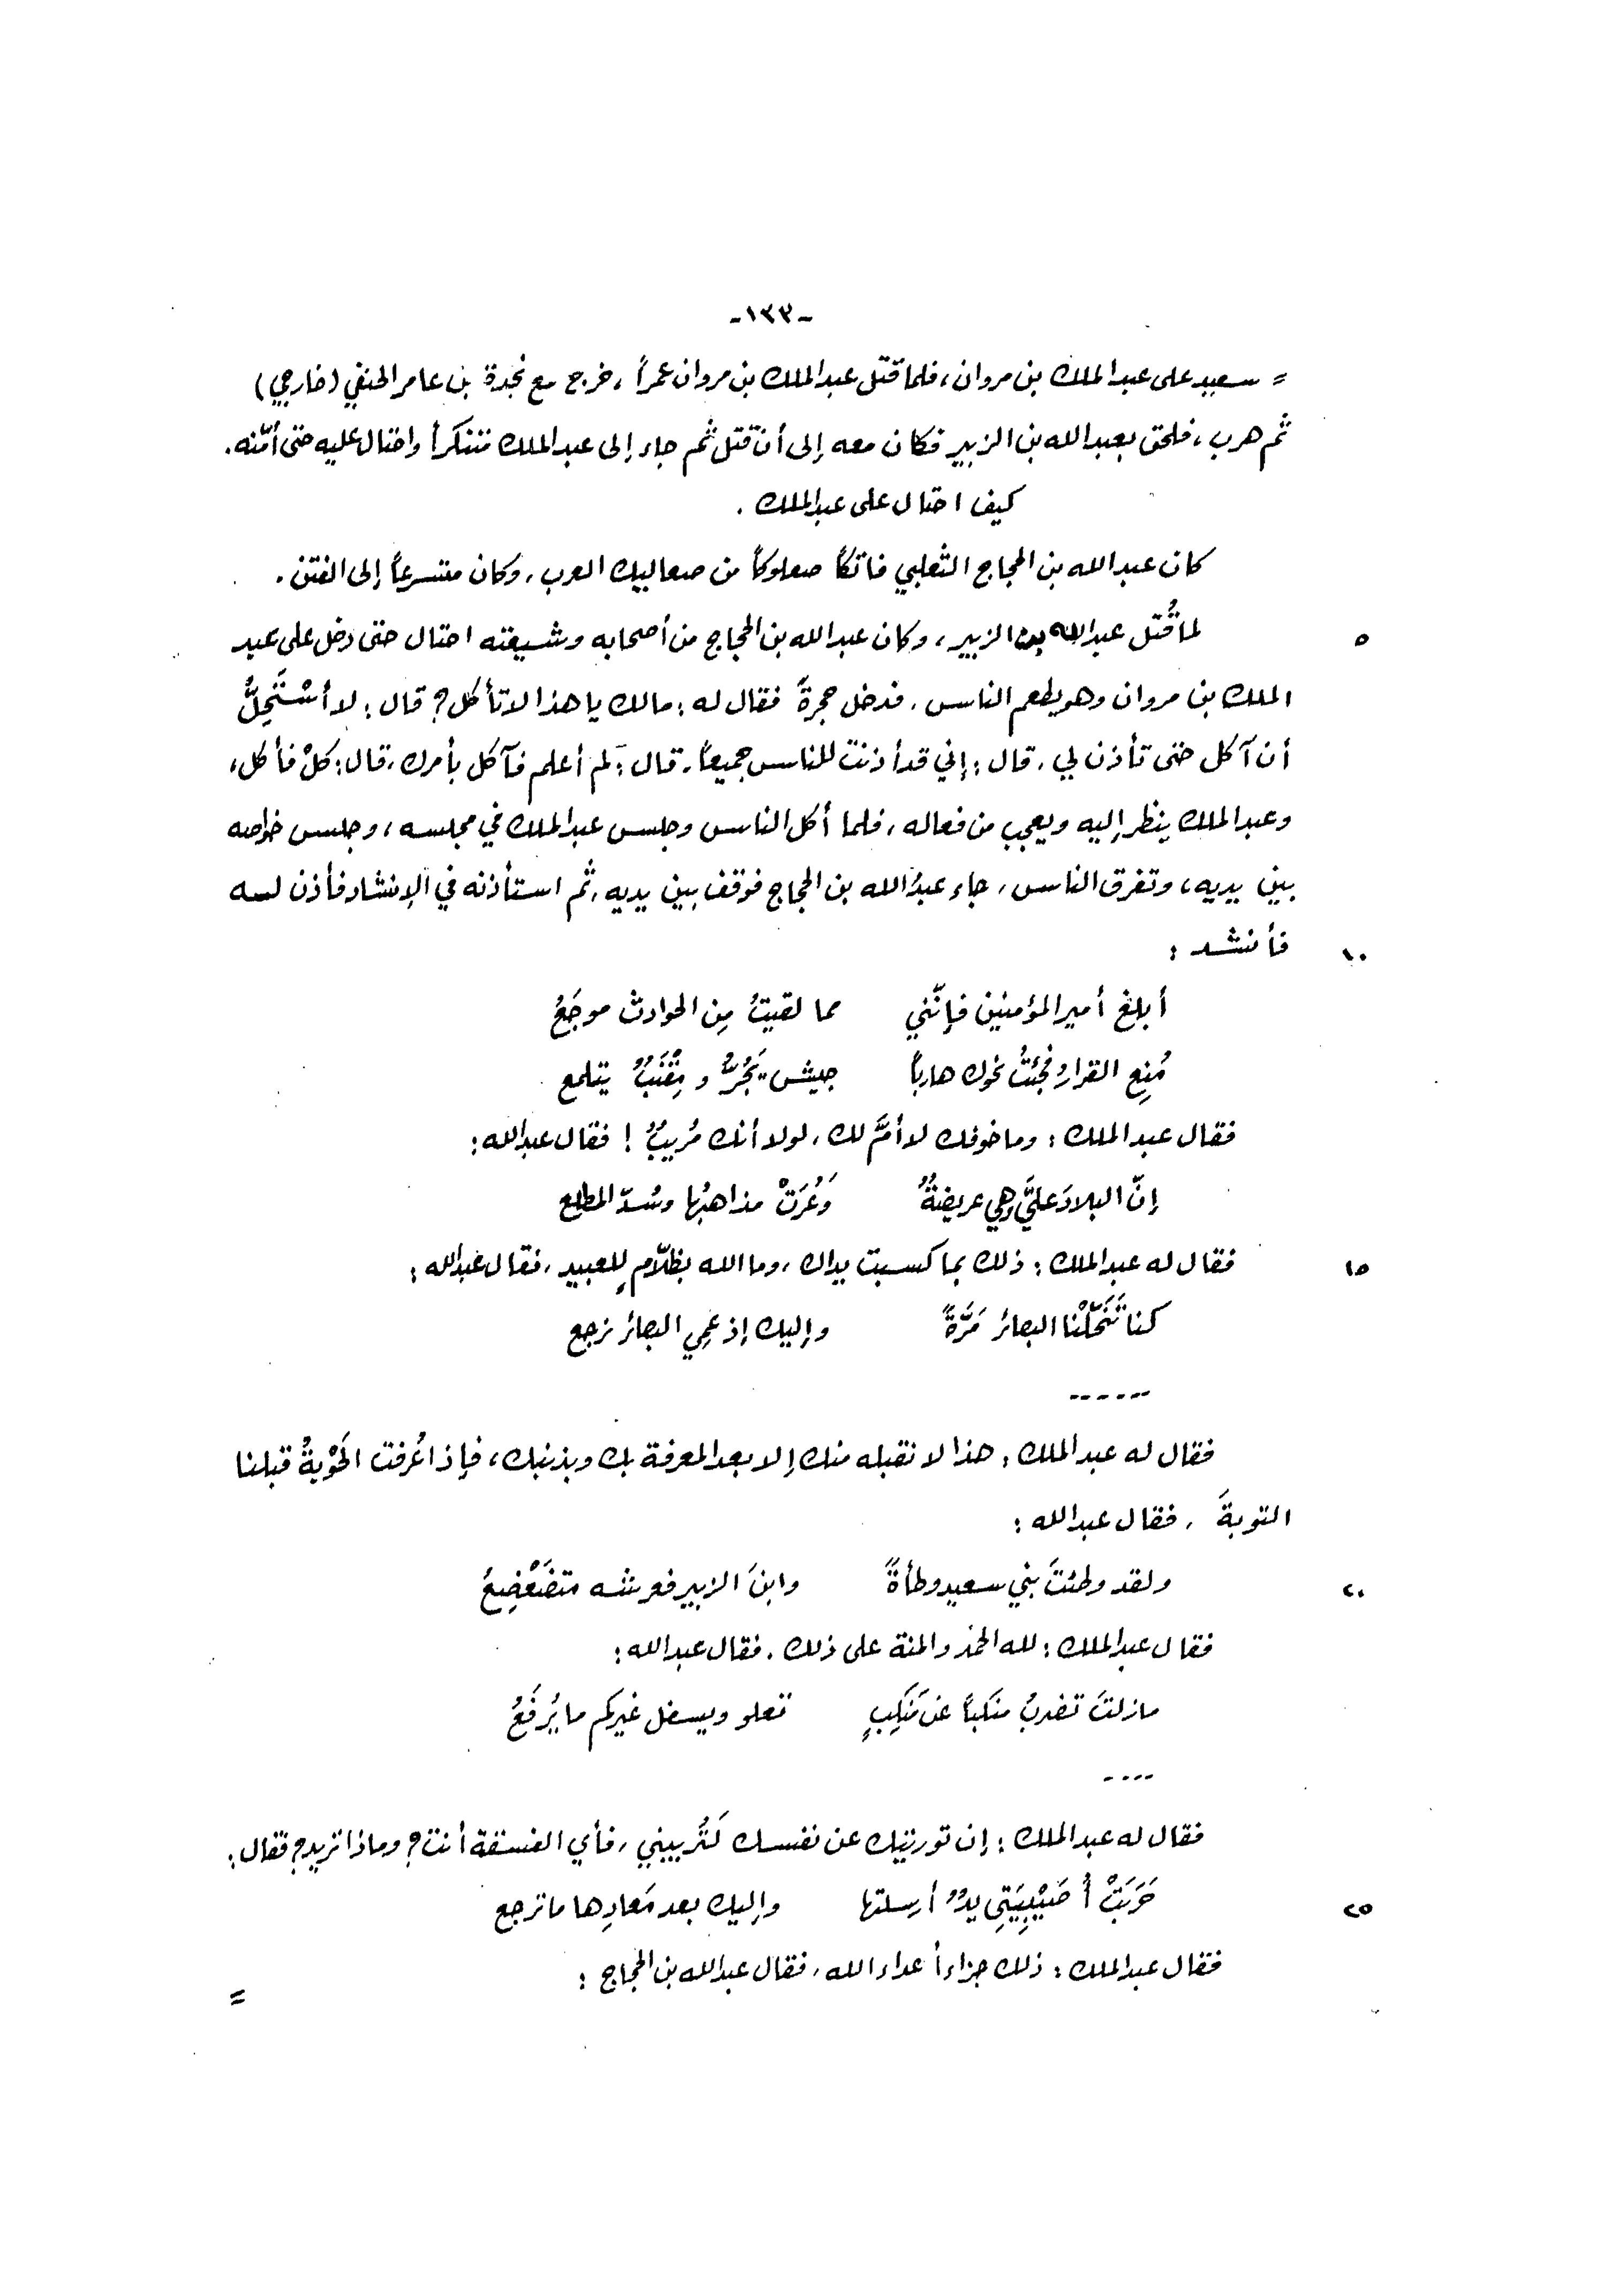 -١٣٣-
= سعيد على عبد الملك بن مروان، فلما قتل عبد الملك بن مروان عمراً، خرج مع نجدة بن عامر الحنفي (خارجي)
ثم هرب، فلحق بعبد الله بن الزبير فكان معه إلى أن قتل ثم جاء إلى عبد الملك متنكراً واحتال عليه حتى أمّنه.
كيف احتال على عبد الملك.
كان عبد الله بن الحجاج الثعلبي فاتكاً صعلوكاً من صعاليك العرب، وكان متسرعاً إلى الفتن.
٥ لما قُتل عبد الله بن الزبير، وكان عبد الله بن الحجاج من أصحابه وشيعته احتال حتى دخل على عبد
الملك بن مروان وهو يطعم الناس، فدخل حجرةً فقال له: مالك يا هذا لا تأكل؟ قال: لا أسْتَحِلُّ
أن آكل حتى تأذن لي، قال: إني قد أذنت للناس جميعاً، قال: لم أعلم فآكل بأمرك، قال: كلْ فأكل،
وعبد الملك ينظر إليه ويعجب من فعاله، فلما أكل الناس وجلس عبد الملك في مجلسه، وجلس خواصه
بين يديه، وتفرق الناس، جاء عبدُ الله بن الحجاج فوقف بين يديه، ثم استأذنه في الإنشاد فأذن لـه
١٠ فأنشد:
أبلغ أمير المؤمنين فإنّني مما لقيتُ مِن الحوادث موجَعُ
مُنِع القرارُ فجئتُ نحوك هارباً جيش يَجُرُّ ومِقْنَبٌ يتلمع
فقال عبد الملك: وما خوفك لا أمَّ لك، لولا أنك مُريبٌ! فقال عبد الله:
إنّ البلادَ عليَّ وهي عريضةٌ وَعُرَتْ مذاهبُها وسُدّ المطلع
١٥ فقال له عبد الملك: ذلك بما كسبت يداك، وما الله بظلّامٍ للعبيد، فقال عبد الله:
كنا تَنَحّلْنا البصائر مَرَّةً وإليك إذ عَمِي البصائر نرجع
------
فقال له عبد الملك: هذا لا نقبله منك إلا بعد المعرفة بك وبذنبك، فإذا عُرفت الحَوْبةُ قبلنا
التوبةَ، فقال عبد الله:
٢٠ ولقد وطئتَ بني سعيدٍ وطأةً وابنَ الزبير فعرشه متضَعْضِعُ
فقال عبد الملك: لله الحمد والمنة على ذلك. فقال عبد الله:
مازلتَ تضربُ منكباً عن مَنكِبٍ تعلو ويسفل غيركم ما يُرفَعُ
----
فقال له عبد الملك: إن توريتك عن نفسك لَتُريبني، فأي الفسقة أنت؟ وماذا تريد؟ فقال:
٢٥ حَرَبَتْ أُصَيْبِيَتي يدٌ أرسلتها وإليك بعد مَعادِها ما ترجع
فقال عبد الملك: ذلك جزاء أعداء الله، فقال عبد الله بن الحجاج:
=